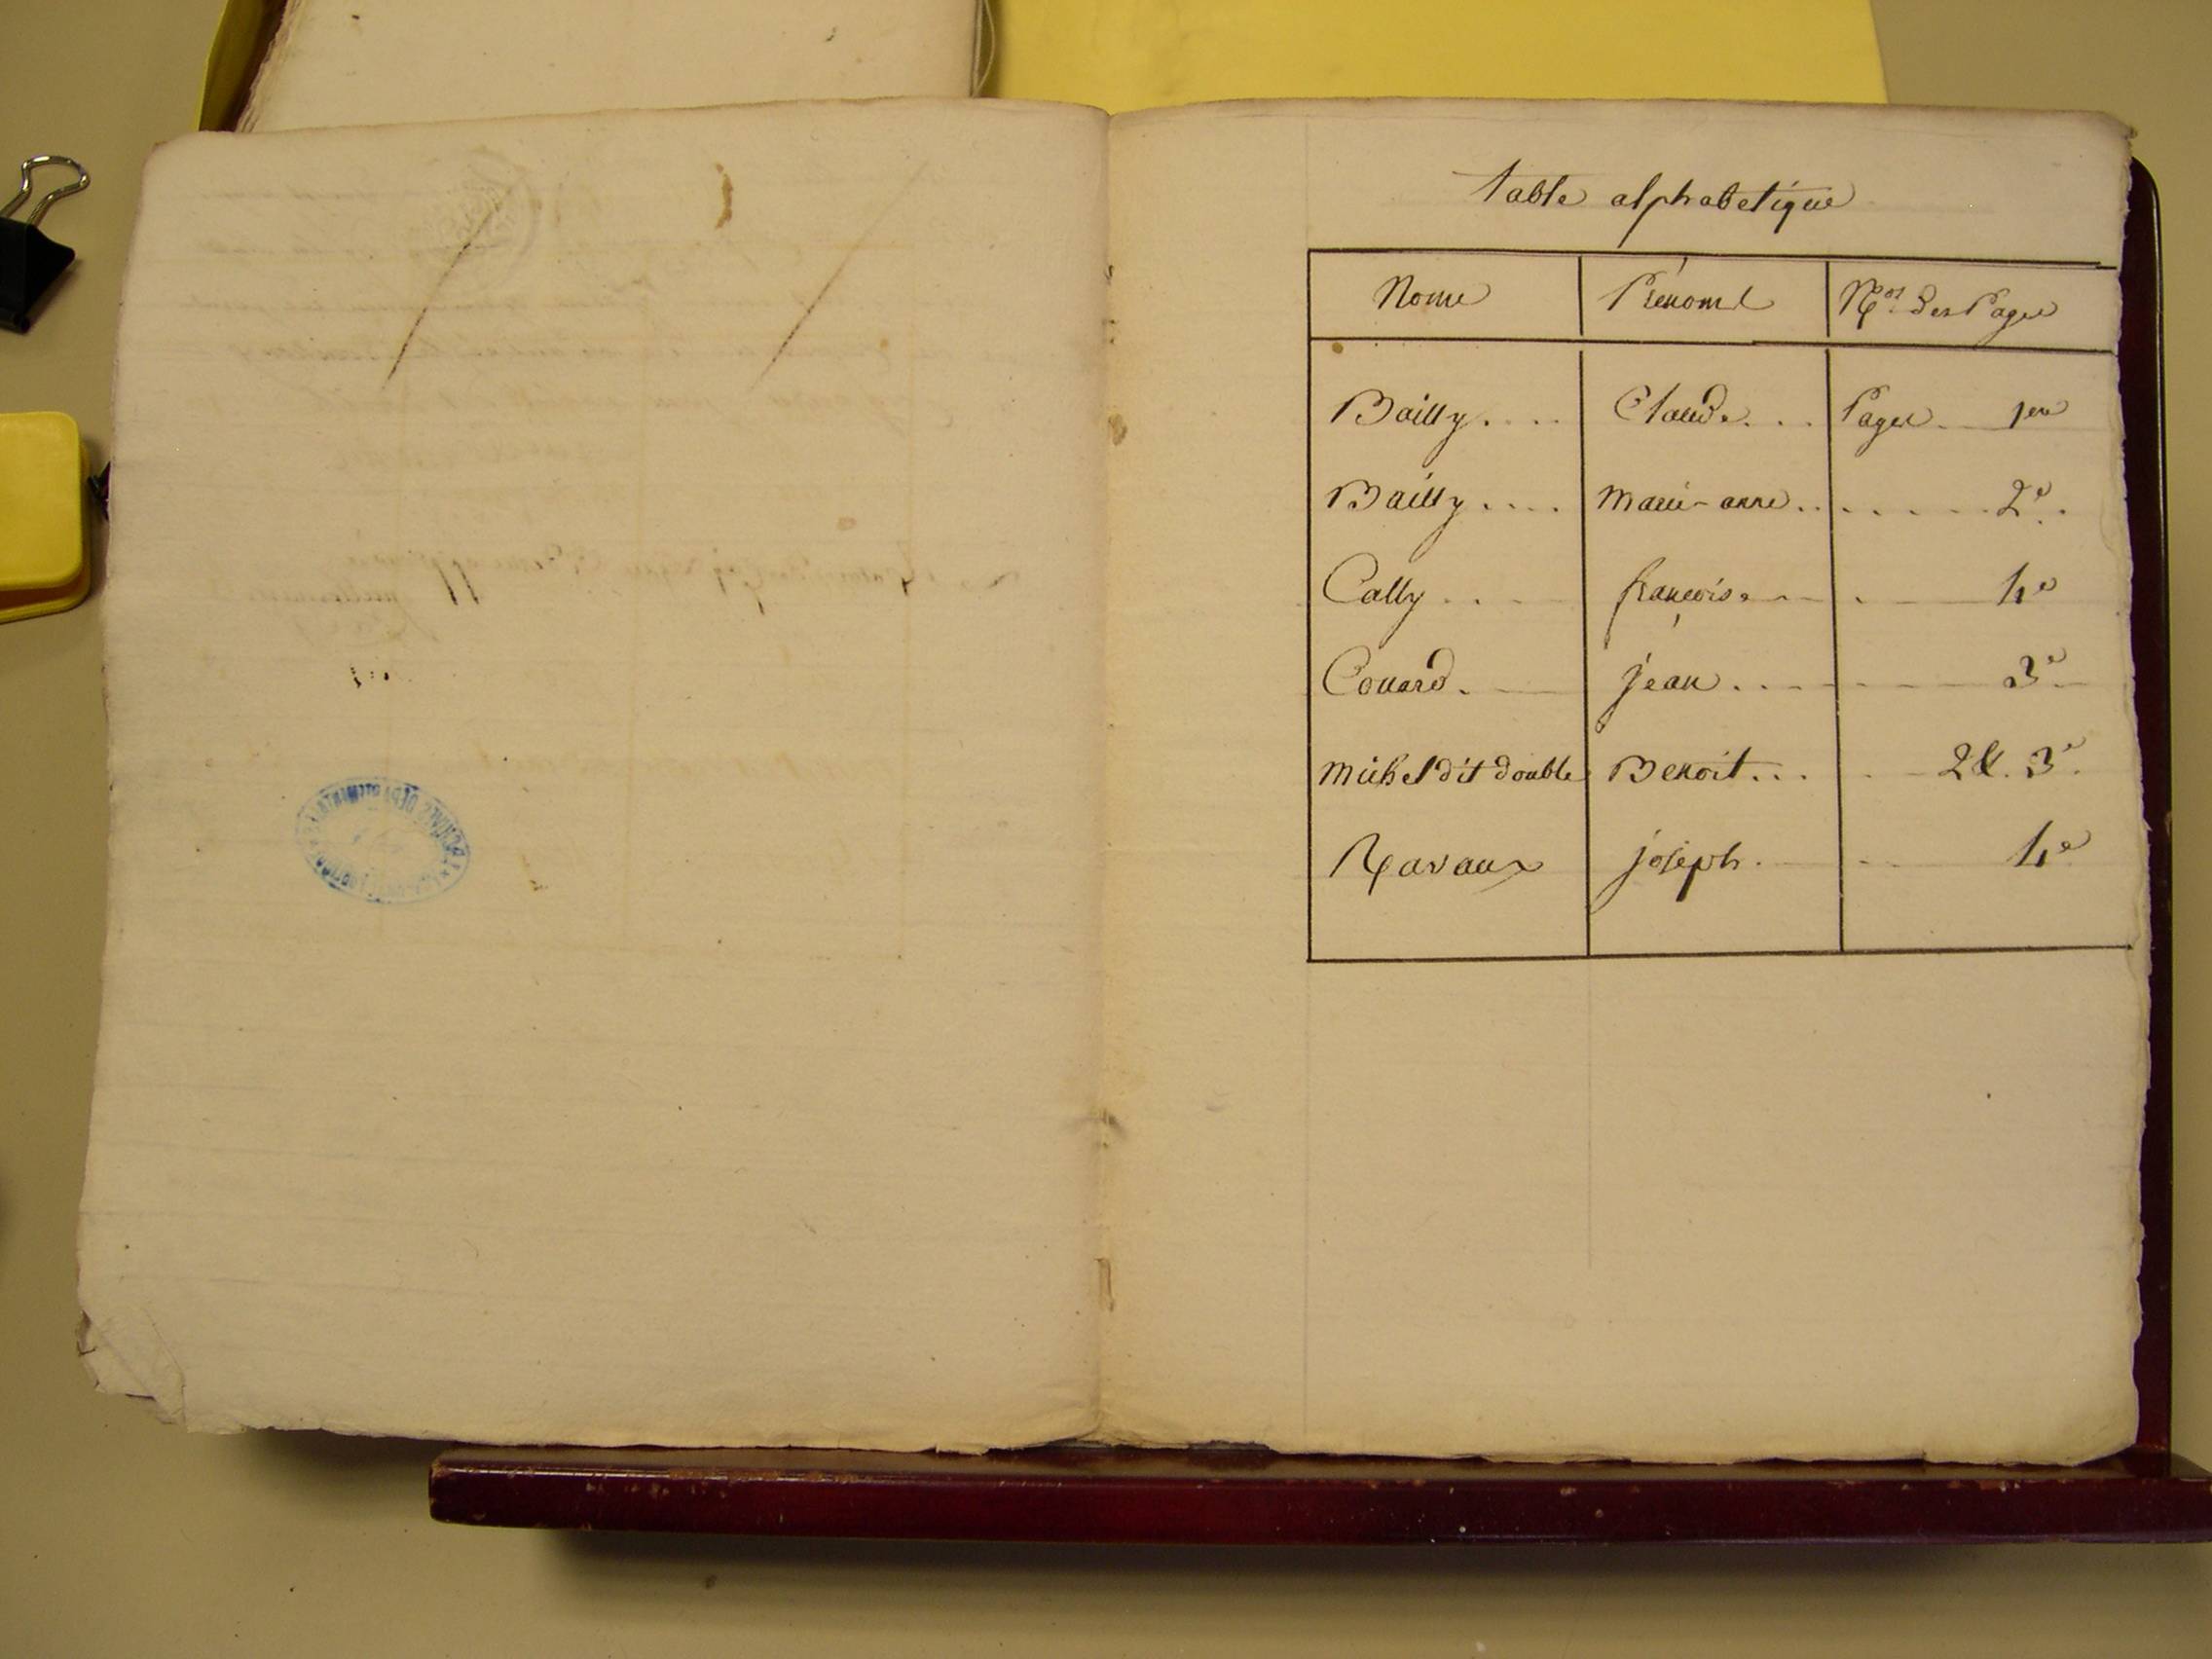 table alphabetique
Noms Prénoms Nos. des Pages
Bailly.... Claude... Pages. 1ere
Bailly.... marie-anne....... 2e.
Cally... françoise . 4e
Couard. jean.... 3e
michel dit double Benoit... 2 &. 3e.
Ravaux joseph. 4e